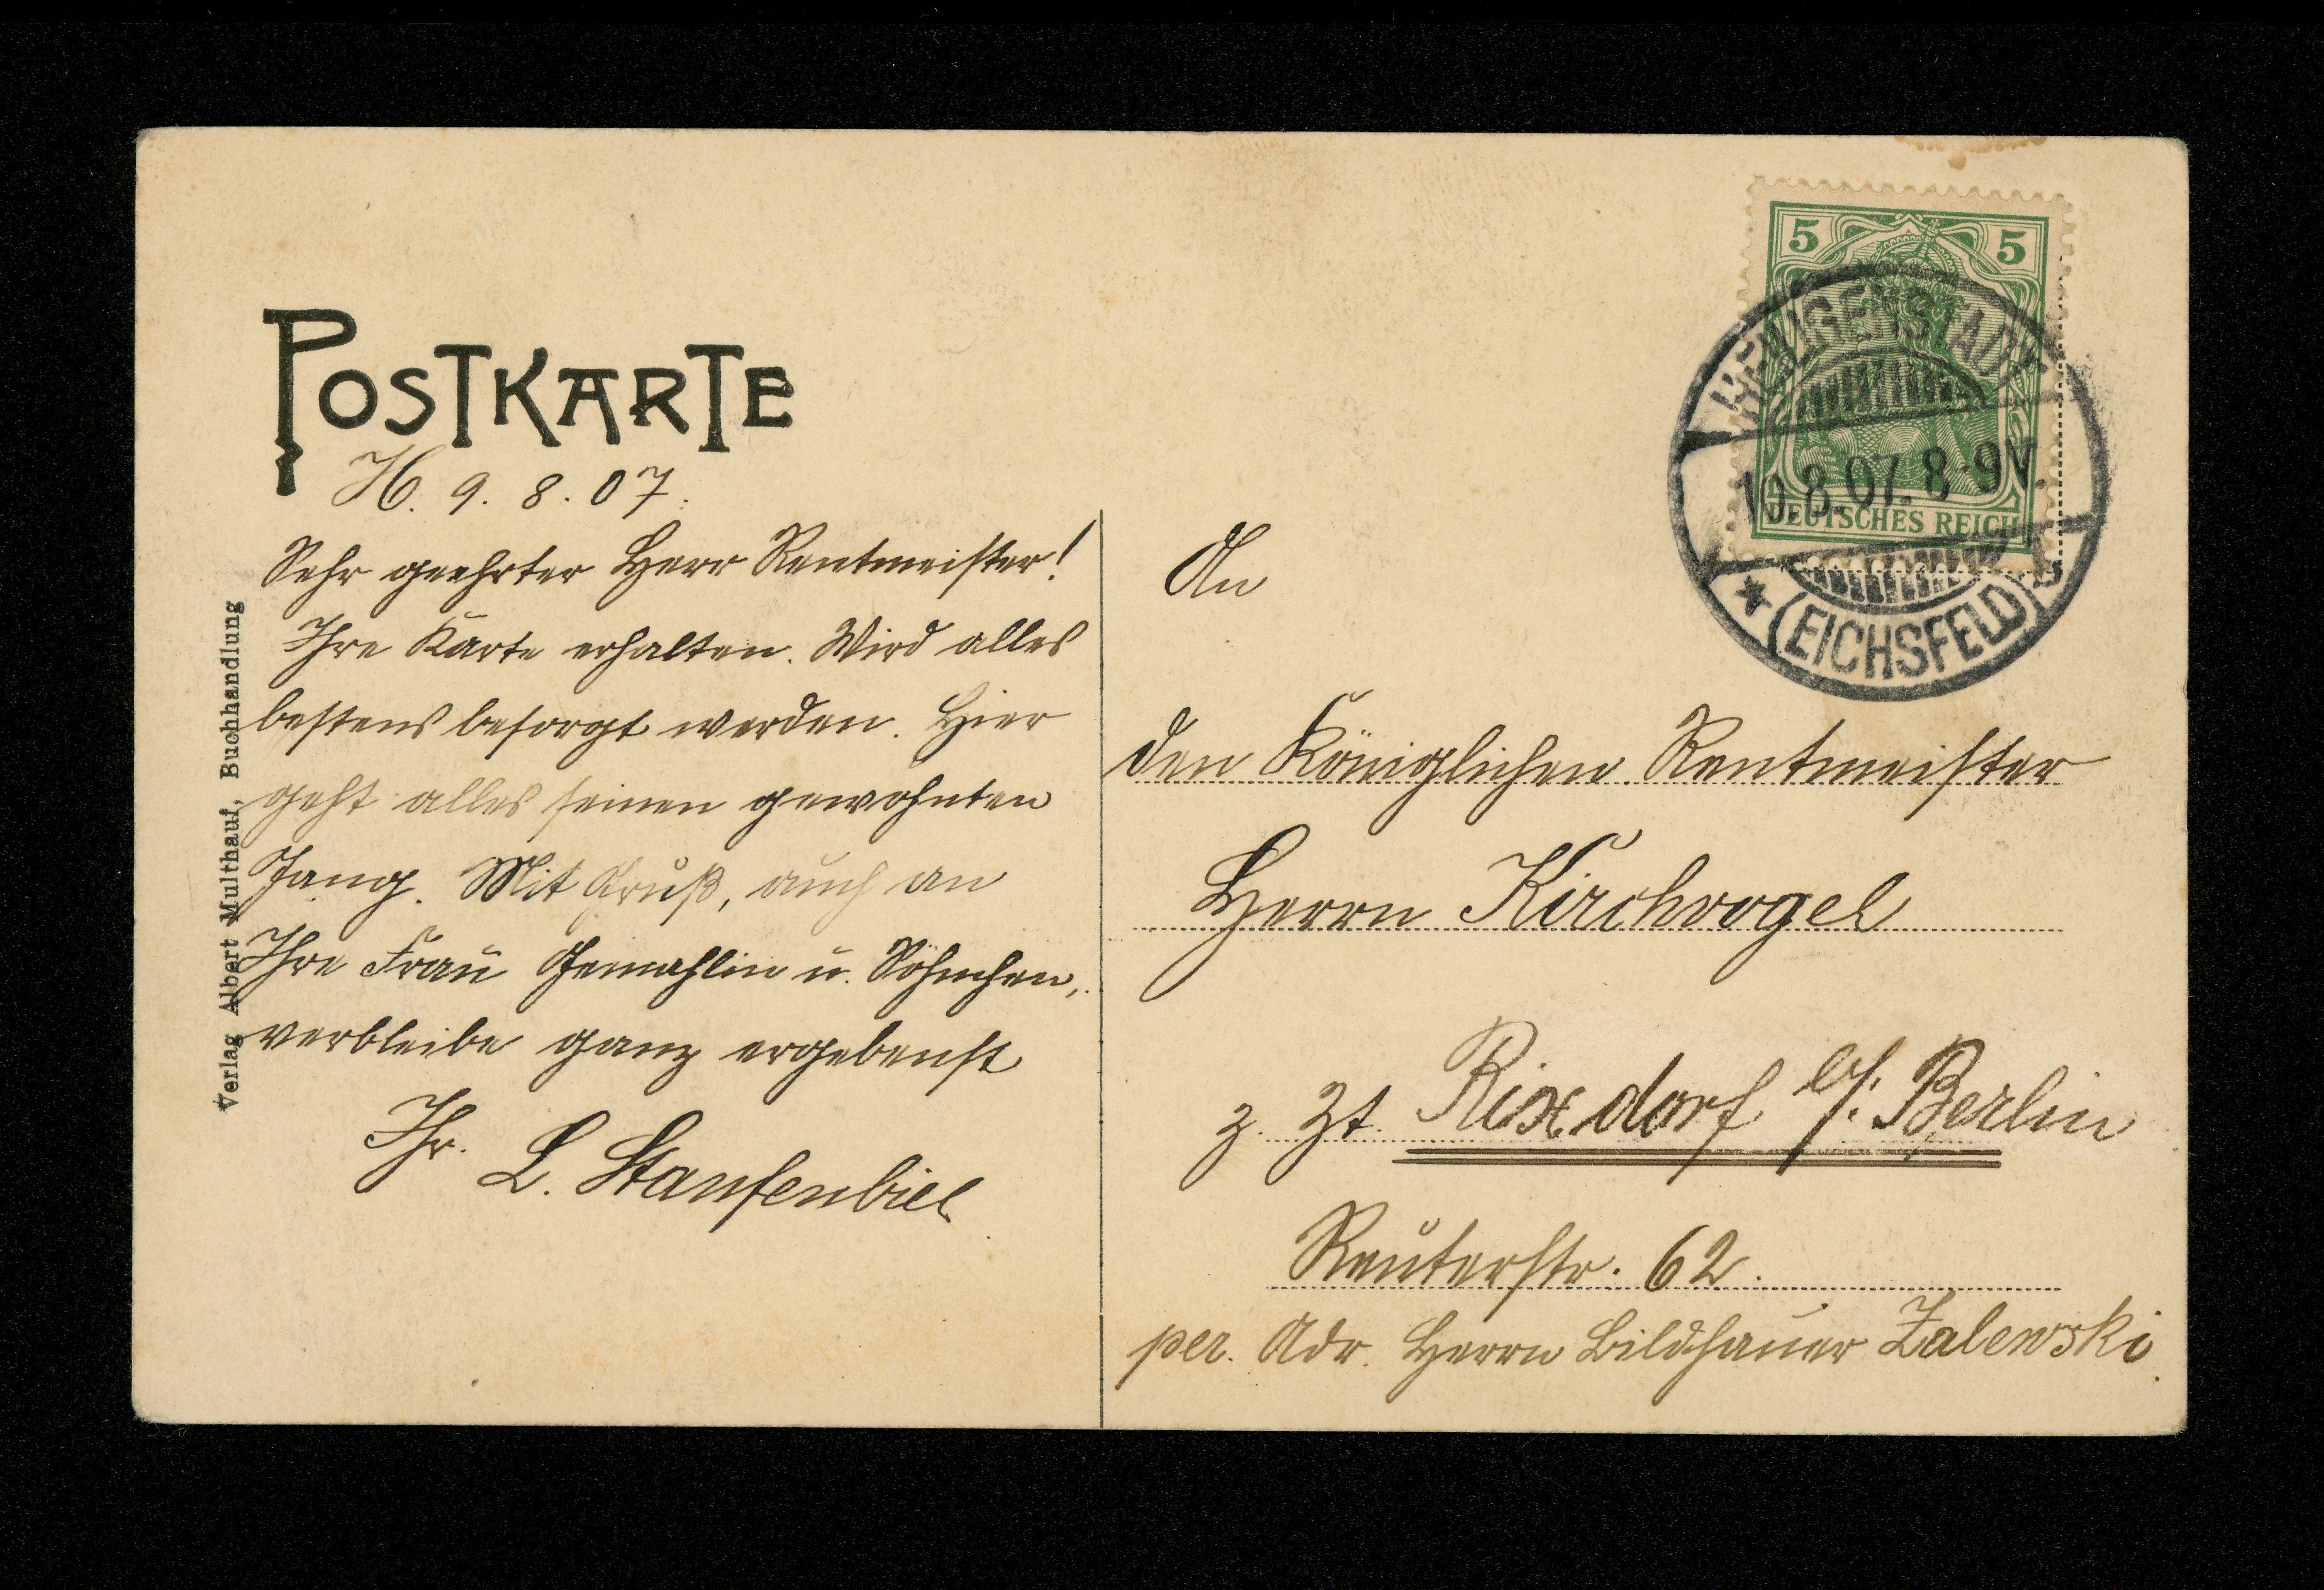 POSTKARTE
H. 9. 8. 07.
Sehr geehrter Herr Rentmeister!
Ihre Karte erhalten. Wird alles
bestens besorgt werden. Hier
geht alles seinen gewohnten
Gang. Mit Gruß, auch an
Ihre Frau Gemahlin u. Söhnchen,
verbleibe ganz ergebenst
Ihr. L. Staufenbiel
Verlag Albert Multhauf, Buchhandlung
5 5
DEUTSCHES REICH
HEILIGENSTADT
10.8.07. 8-9V.
* (EICHSFELD) b
An
den Königlichen Rentmeister
Herrn Kirchvogel
z. Zt. Rixdorf b/. Berlin
Reuterstr. 62.
per. Adr. Herrn Bildhauer Zalewski.